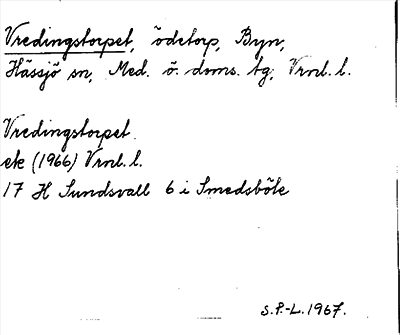 Vredingstorpet, ödetorp, Byn,
Hässjö sn, Med. ö. doms. tg, Vrnl. l.
Vredingstorpet.
ek (1966) Vrnl. l.
17 H Sundsvall 6 i Smedsböle
S.P.-L. 1967.